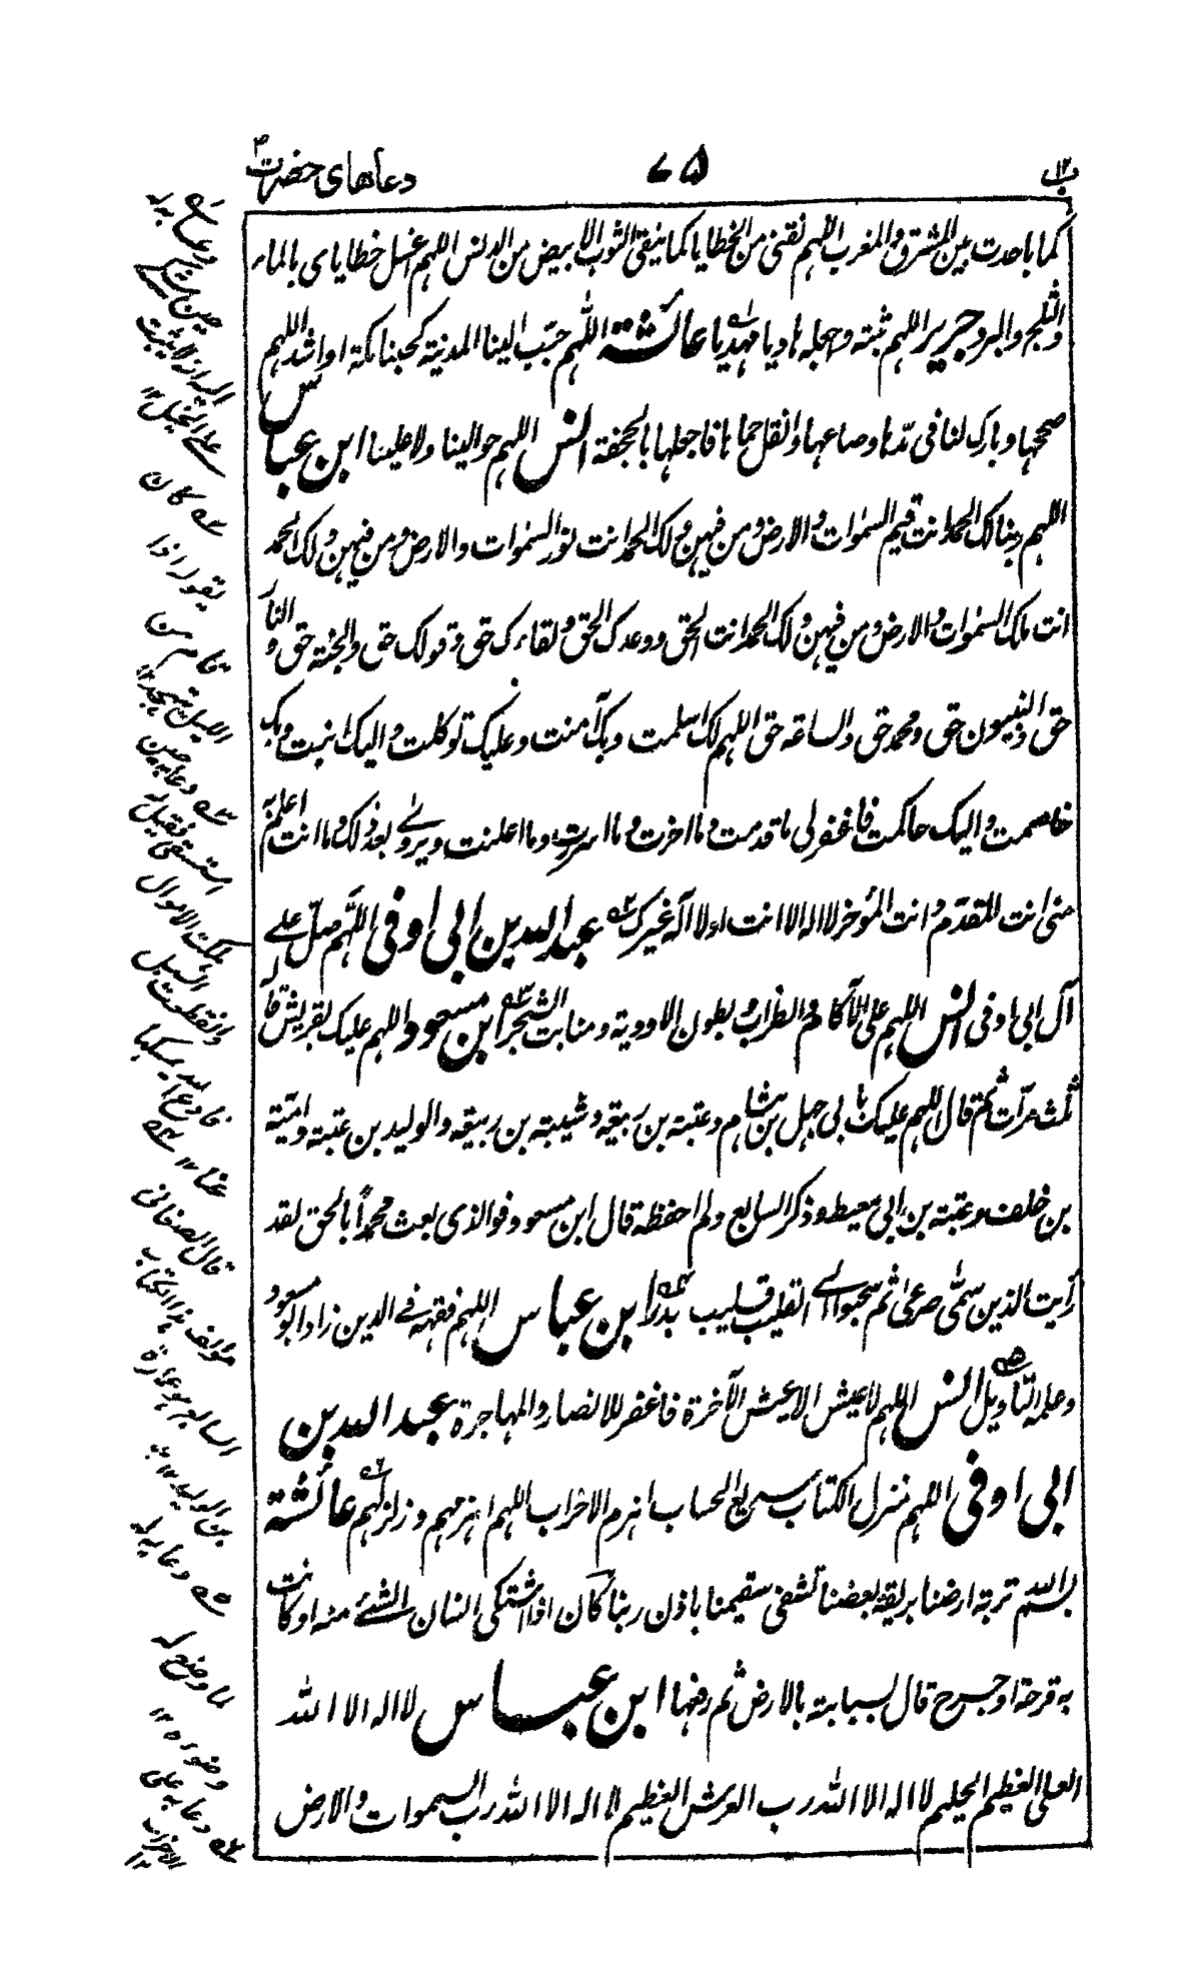 ب ١٢
٧٥
دعاهای حضرت
كما باعدت بين المشرق والمغرب اللهم نقنى من الخطايا كما ينقى الثوب الابيض من الدنس اللهم اغسل خطاياى بالماء
والثلج والبرد جرير اللهم ثبته واجعله هاديا مهديا عائشة اللهم حبب الينا المدينة كحبنا مكة او اشد اللهم
صححها وبارك لنا فى مدها وصاعها وانقل حماها فاجعلها بالجحفة انس اللهم حوالينا ولا علينا ابن عباس
اللهم ربنا لك الحمد انت قيم السموات والارض ومن فيهن ولك الحمد انت نور السموات والارض ومن فيهن ولك الحمد
انت ملك السموات والارض ومن فيهن ولك الحمد انت الحق ووعدك الحق ولقاءك حق وقولك حق والجنة حق والنار
حق والنبيون حق ومحمد حق والساعة حق اللهم لك اسلمت وبك آمنت وعليك توكلت واليك انبت وبك
خاصمت واليك حاكمت فاغفر لى ما قدمت وما اخرت وما اسررت وما اعلنت ويروى بعد ذلك وما انت اعلم به
منى انت المقدم وانت المؤخر لا اله الا انت او لا اله غيرك عبد الله بن ابى اوفى اللهم صل على
آل ابى اوفى انس اللهم على الآكام والظراب وبطون الاودية ومنابت الشجر ابن مسعود اللهم عليك بقريش قاله
ثلث مرات ثم قال اللهم عليك بابى جهل بن هشام وعتبة بن ربيعة وشيبة بن ربيعة والوليد بن عتبة وامية
بن خلف وعقبة بن ابى معيط وذكر السابع ولم احفظه قال ابن مسعود فوالذى بعث محمدا بالحق لقد
رايت الذين سمى صرعى ثم سحبوا الى القليب قليب بدر ابن عباس اللهم فقهه فى الدين زاد ابو مسعود
وعلمه التاويل انس اللهم لا عيش الا عيش الآخرة فاغفر للانصار والمهاجرة عبد الله بن
ابى اوفى اللهم منزل الكتاب سريع الحساب اهزم الاحزاب اللهم اهزمهم وزلزلهم عائشة
بسم الله تربة ارضنا بريقة بعضنا تشفى سقيمنا باذن ربنا كان اذا اشتكى انسان الشئ منه او كانت
به قرحة او جرح قال بسبابته بالارض ثم رفعها ابن عباس لا اله الا الله
العلى العظيم الحليم لا اله الا الله رب العرش العظيم لا اله الا الله رب السموات والارض
دعا به له
حين اشتكى
اليه انه لا يثبت
على الخيل ١٢
كان
يقول اذا
قام من
الليل يتهجد ١٢
دعا به حين
استسقى فقيل له
هلكت الاموال
وانقطعت السبل
فادع الله يمسكها
عنا ١٢
قال الصغانى
مؤلف هذا الكتاب
السابع هو عمارة
بن الوليد ١٢
دعا به له
لما وضع له
وضوءه ١٢
دعا به على
الاحزاب ١٢